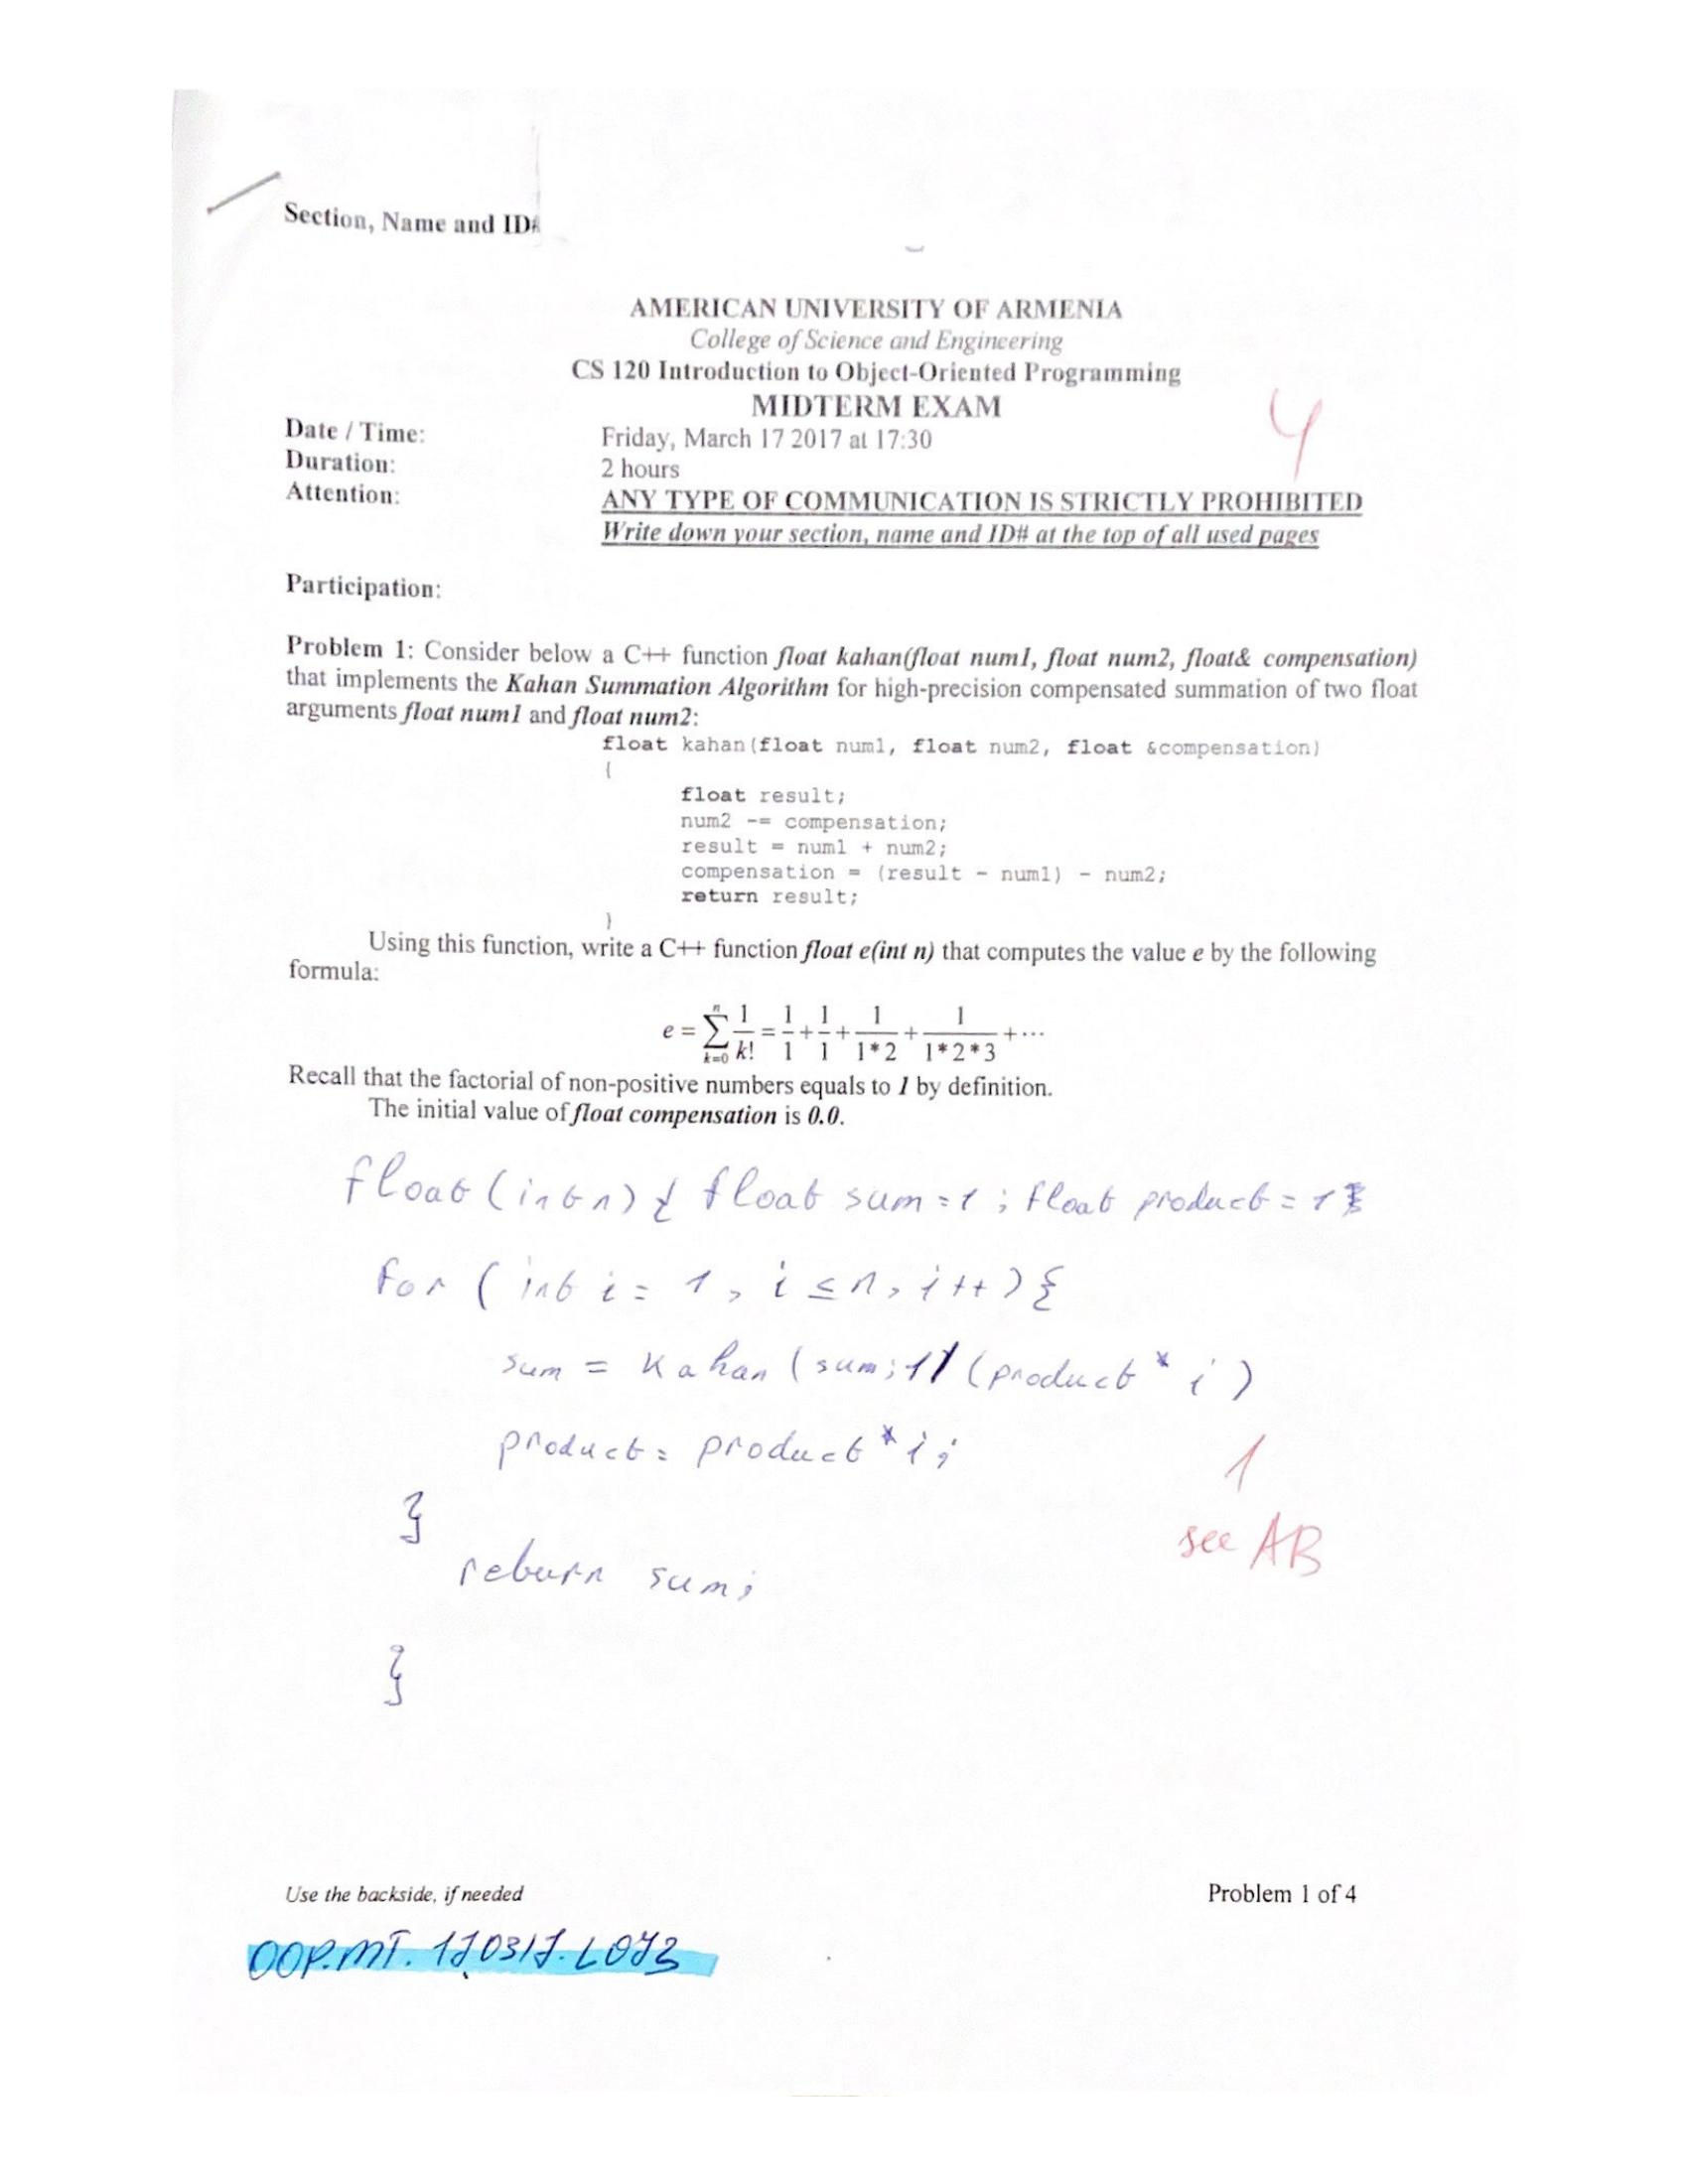 Section, Name and ID#
AMERICAN UNIVERSITY OF ARMENIA
College of Science and Engineering
CS 120 Introduction to Object-Oriented Programming
MIDTERM EXAM
4
Date / Time: Friday, March 17 2017 at 17:30
Duration: 2 hours
Attention: ANY TYPE OF COMMUNICATION IS STRICTLY PROHIBITED
Write down your section, name and ID# at the top of all used pages
Participation:
Problem 1: Consider below a C++ function float kahan(float num1, float num2, float& compensation)
that implements the Kahan Summation Algorithm for high-precision compensated summation of two float
arguments float num1 and float num2:
float kahan(float num1, float num2, float &compensation)
{
float result;
num2 -= compensation;
result = num1 + num2;
compensation = (result - num1) - num2;
return result;
}
Using this function, write a C++ function float e(int n) that computes the value e by the following
formula:
e = ∑ₖ₌₀ⁿ 1/k! = 1/1 + 1/1 + 1/1*2 + 1/1*2*3 + ···
Recall that the factorial of non-positive numbers equals to 1 by definition.
The initial value of float compensation is 0.0.
float(int n) { float sum = 1 ; float product = 1;
for ( int i = 1 , i ≤ n, i++ ) {
sum = Kahan (sum; 1/ (product * i )
product = product * i ;
}
1
see AB
return sum;
}
Use the backside, if needed
Problem 1 of 4
OOP.MT.170317.L073